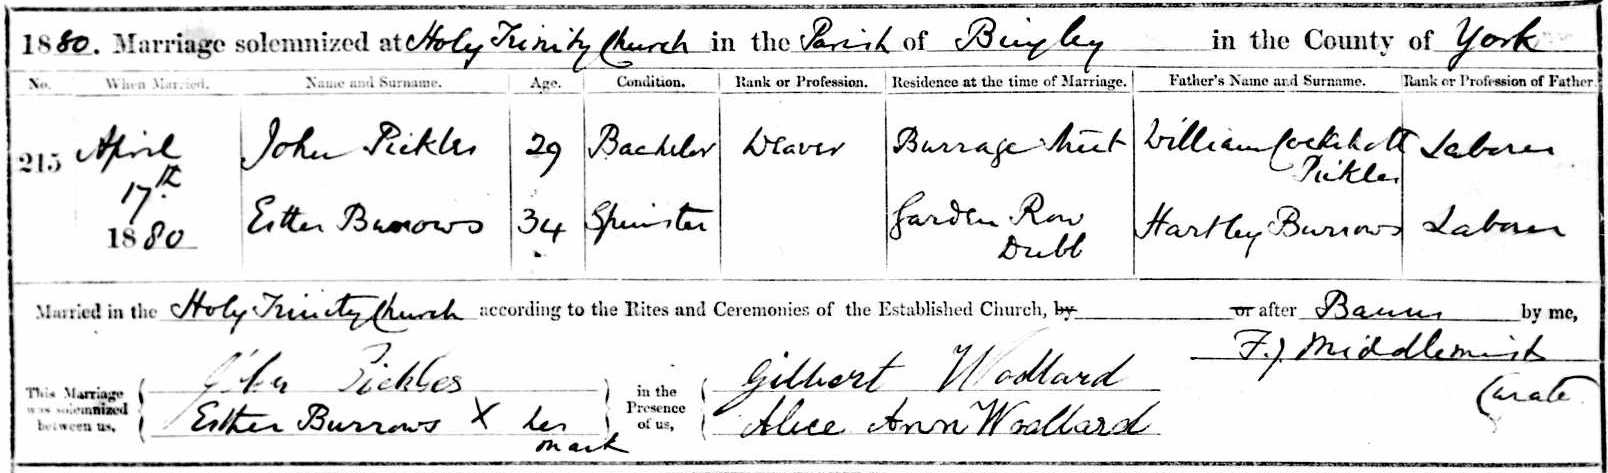 1880. Marriage solemnized at Holy Trinity Church in the Parish of Bingley in the County of York
No. When Married. Name and Surname. Age. Condition. Rank or Profession. Residence at the time of Marriage. Father's Name and Surname. Rank or Profession of Father.
215 April 17th 1880 John Pickles 29 Bachelor Weaver Burrage Street William Cockshott Pickles Laborer
Esther Burrows 34 Spinster Garden Row Dubb Hartley Burrows Laborer
Married in the Holy Trinity Church according to the Rites and Ceremonies of the Established Church, by or after Banns by me,
F. J. Middlemist
Curate
This Marriage was solemnized between us, John Pickles in the Presence of us, Gilbert Woollard
Esther Burrows X her mark Alice Ann Woollard